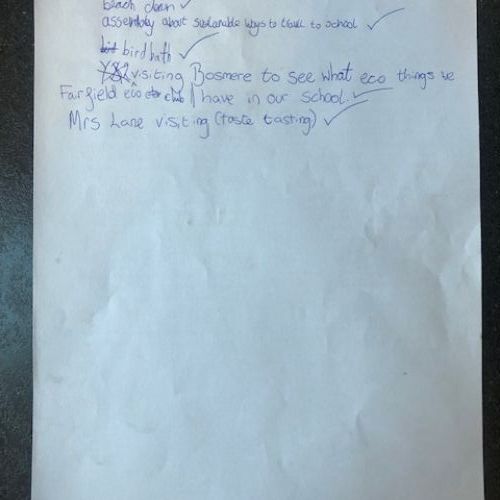 beach clean
assembly about sustainable ways to travel to school
bird bath
visiting Bosmere to see what eco things we
Fairfield eco club have in our school.
Mrs Lane visiting (taste tasting)